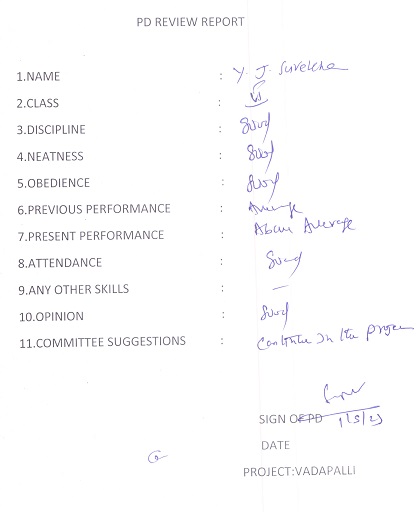 PD REVIEW REPORT
1.NAME : Y. J. Surekha
2.CLASS : VI
3.DISCIPLINE : Good
4.NEATNESS : Good
5.OBEDIENCE : Good
6.PREVIOUS PERFORMANCE : Average
7.PRESENT PERFORMANCE : Above Average
8.ATTENDANCE : Good
9.ANY OTHER SKILLS : —
10.OPINION : Good
11.COMMITTEE SUGGESTIONS : Continue in the project
SIGN OF PD
DATE
PROJECT:VADAPALLI